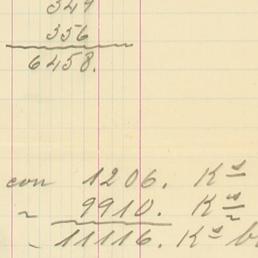 347
356
6458.
con 1206. Ks
~ 9910. Ks
~ 11116. Ks